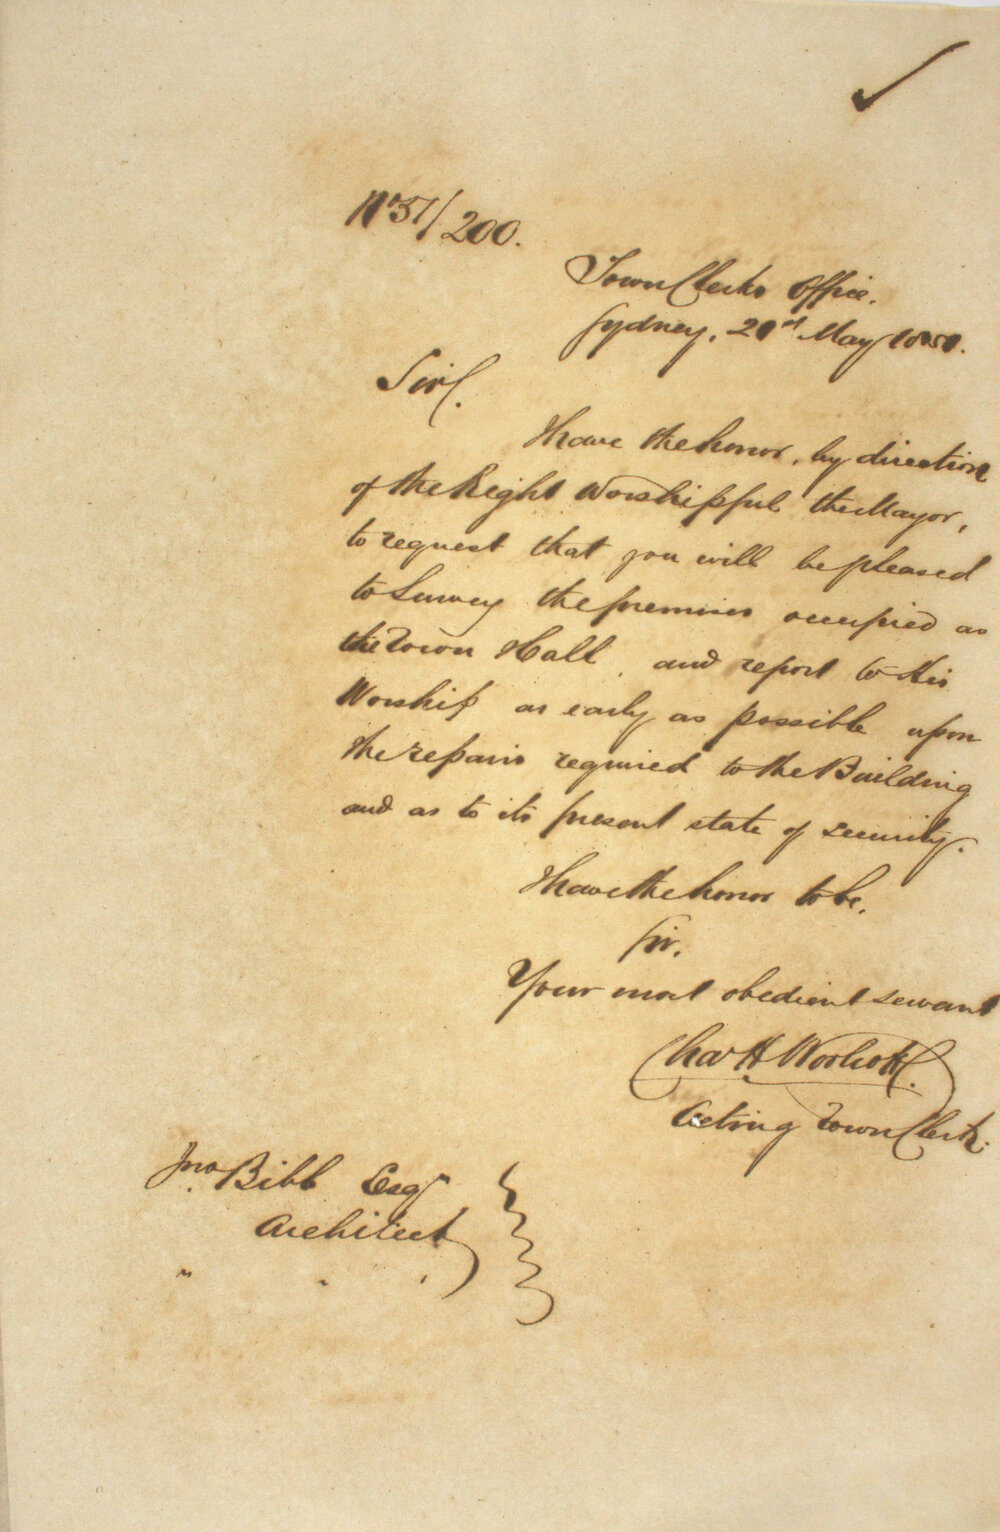 No 51/200.
Town Clerks Office.
Sydney, 21st May 1851.
Sir/.
I have the honor, by direction
of the Right Worshipful the Mayor,
to request that you will be pleased
to Survey the premises occupied as
the Town Hall and report to His
Worship as early as possible upon
the repairs required to the Building
and as to its present state of security.
I have the honor to be.
Sir.
Your most obedient servant
Chas H. Woolcott.
Acting Town Clerk.
Jno. Bibb Esqr
Architect
" " "